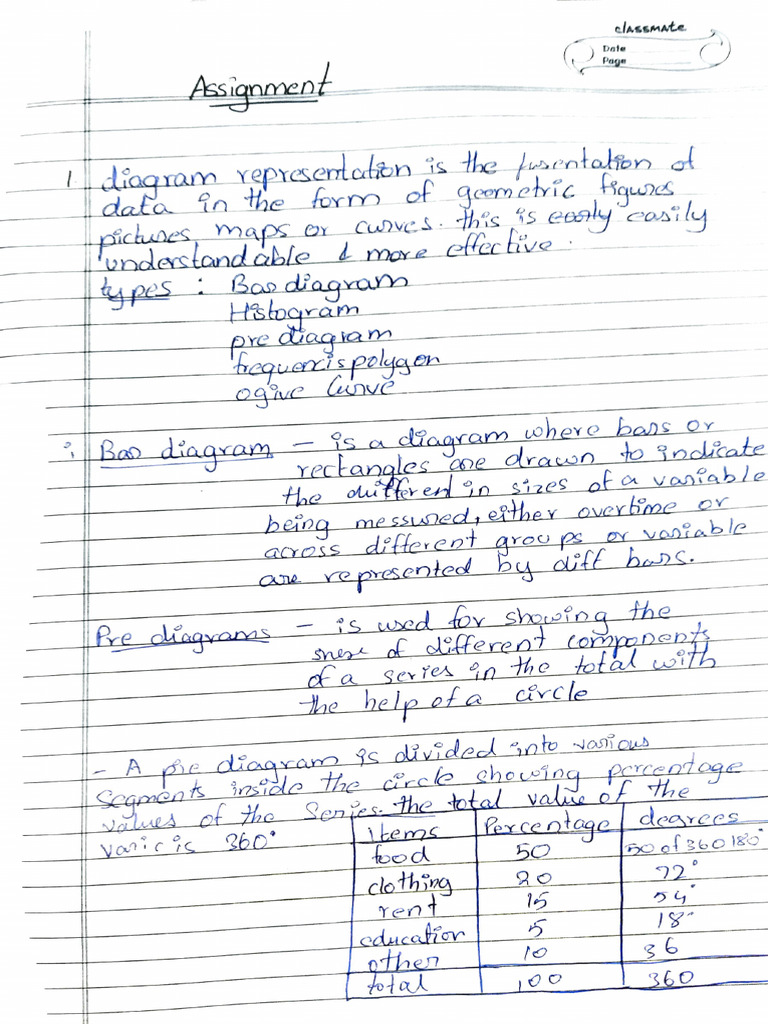 classmate
Date
Page
Assignment
1. diagram representation is the presentation of
data in the form of geometric figures
pictures, maps or curves. this is easily
understandable & more effective.
types : Bar diagram
Histogram
pie diagram
frequencis polygon
ogive Curve
i Bar diagram – is a diagram where bars or
rectangles are drawn to indicate
the different in sizes of a variable
being messured, either overtime or
across different groups or variable
are represented by diff bars.
Pie diagrams – is used for showing the
of different components
of a series in the total with
the help of a circle
– A pie diagram is divided into various
segments inside the circle showing percentage
values of the series. the total value of the
is 360°
Items Percentage degrees
food 50 50 of 360 180°
clothing 20 72°
rent 15 54°
education 5 18°
other 10 36
total 100 360